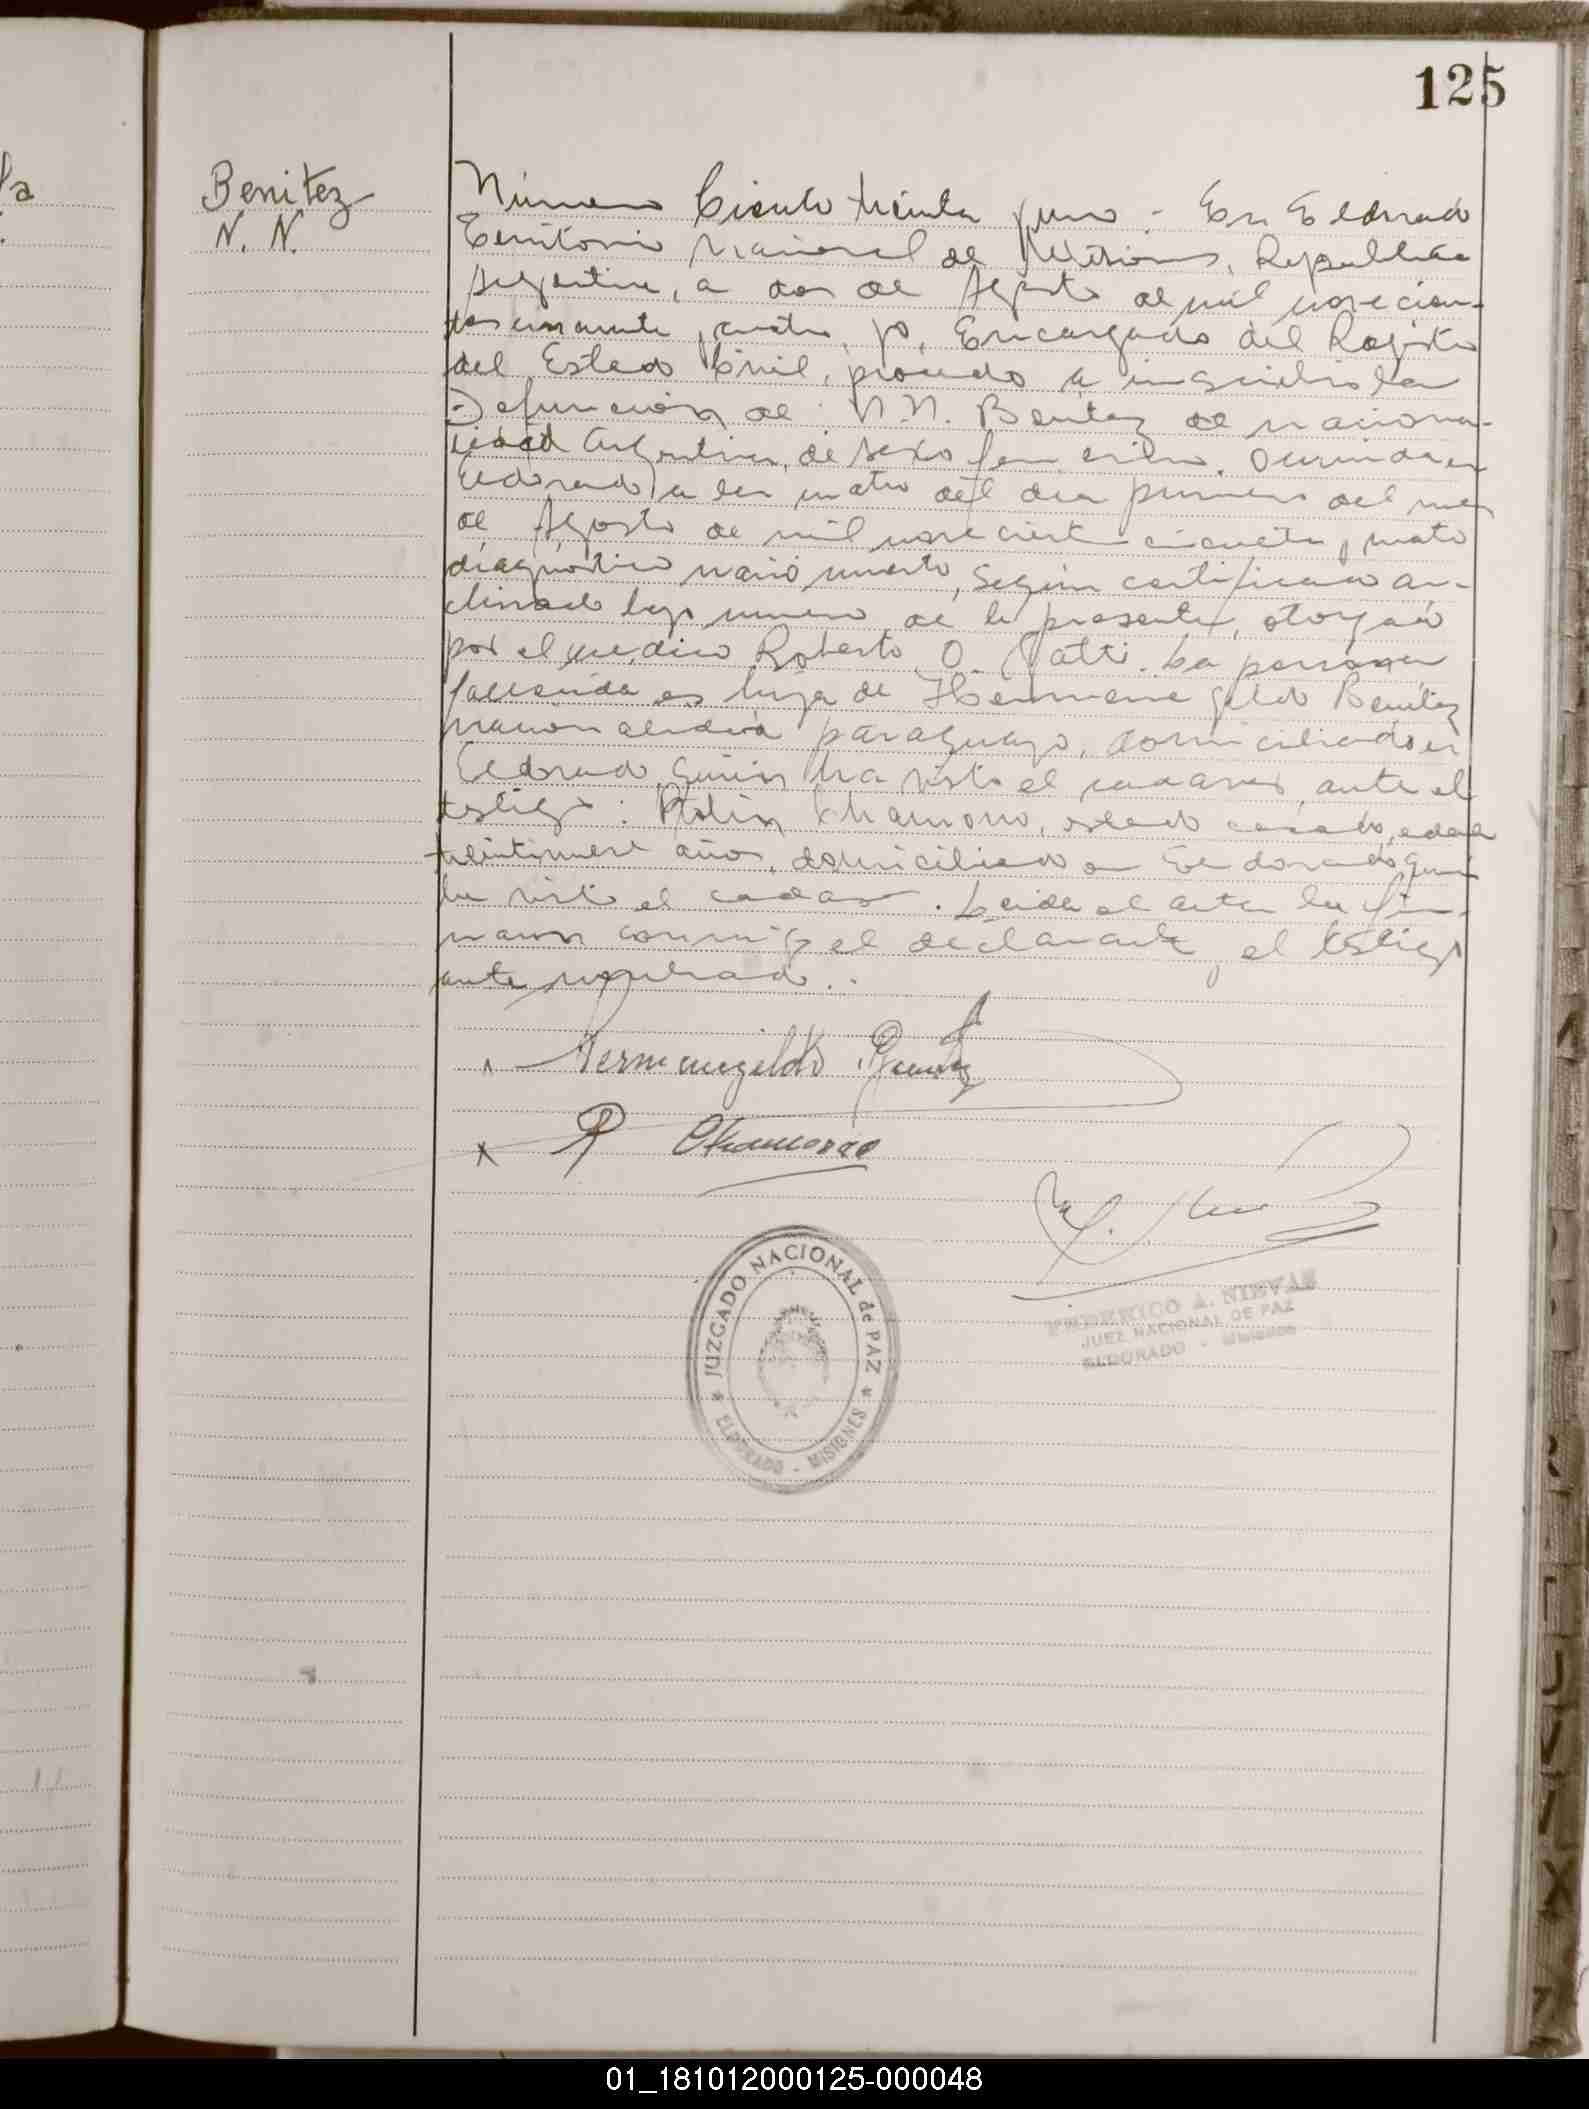 125
Benitez
N. N.
Número Ciento treinta y uno - En Eldorado
Territorio Nacional de Misiones, República
Argentina, a dos de Agosto de mil novecien-
tos cincuenta y cuatro, yo, Encargado del Registro
del Estado Civil, procedo a inscribir la
Defunción de N.N. Benitez de naciona-
lidad Argentina, de sexo femenino. Ocurrida en
Eldorado a las cuatro del dia primero del mes
de Agosto de mil novecient cincuenta y cuatro
diagnóstico nació muerto, según certificado ar-
chivado bajo numero de la presente, otorgado
por el medico Roberto O. Gatti. La persona
fallecida es hija de Hermenegildo Benitez
nacionalidad paraguayo, domiciliado en
Eldorado quien ha visto el cadaver, ante el
testigo: Chamorro, estado casado, edad
treintinueve años, domiciliado en Eldorado quien
ha visto el cadaver. Leida el acta la fir-
maron conmigo el declarante y el testigo
ante nombrado.
x Hermenegildo Benitez
x P Chamorro
JUZGADO NACIONAL de PAZ
ELDORADO - MISIONES
FEDERICO A. NIEVAS
JUEZ NACIONAL DE PAZ
ELDORADO - Misiones
01_181012000125-000048